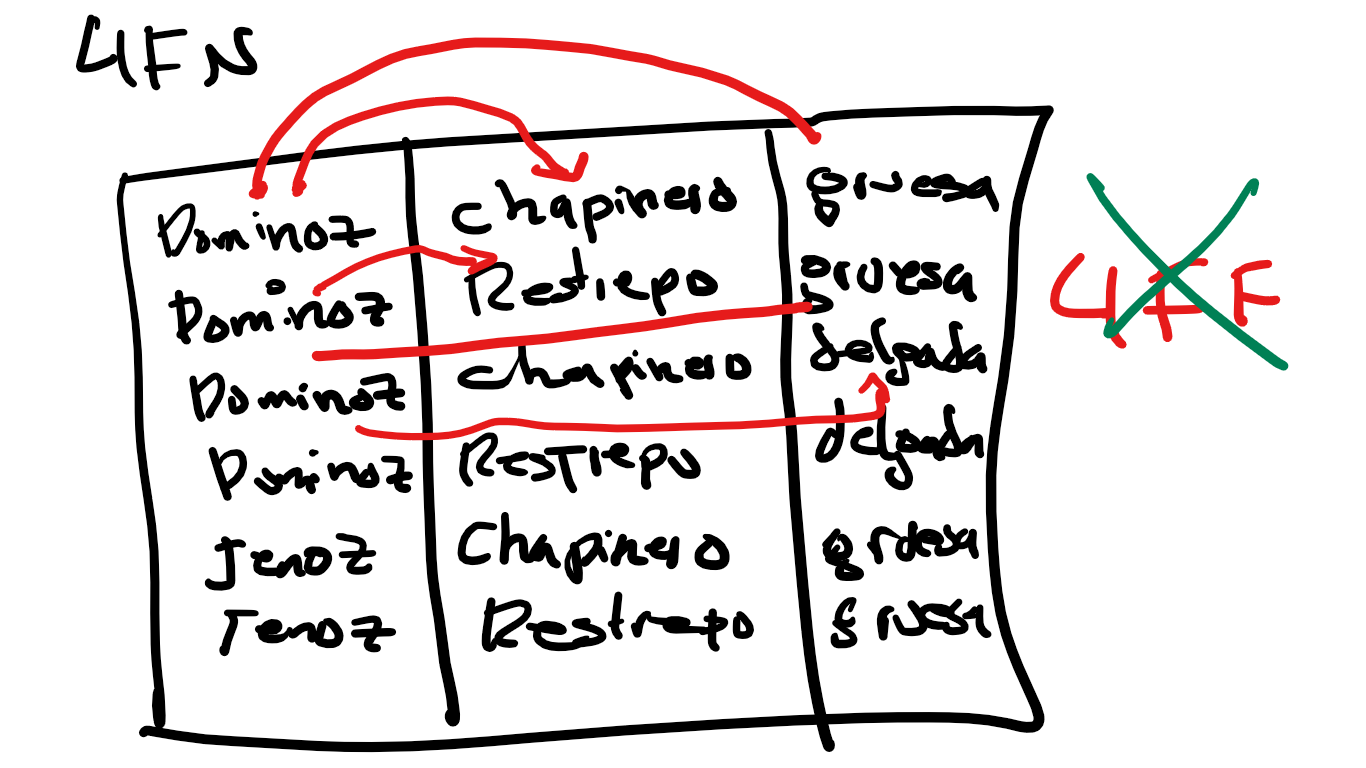 4FN
Dominoz Chapinero gruesa
Dominoz Restrepo gruesa
Dominoz chapinero delgada
Dominoz Restrepo delgada
Jenoz Chapinero gruesa
Jenoz Restrepo gruesa
4FF